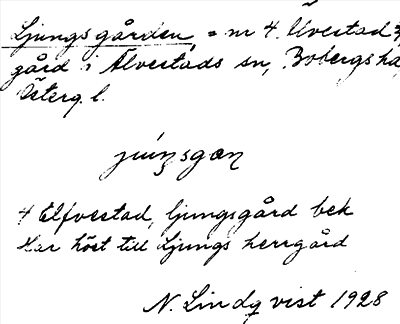 Ljungsgården, = nr 4 Älvestad
gård i Älvestads sn, Bobergs hd
Österg. l.
juŋsgɑn
4 Elfvestad, ljungsgård bek
Har hört till Ljungs herrgård
N. Lindqvist 1928